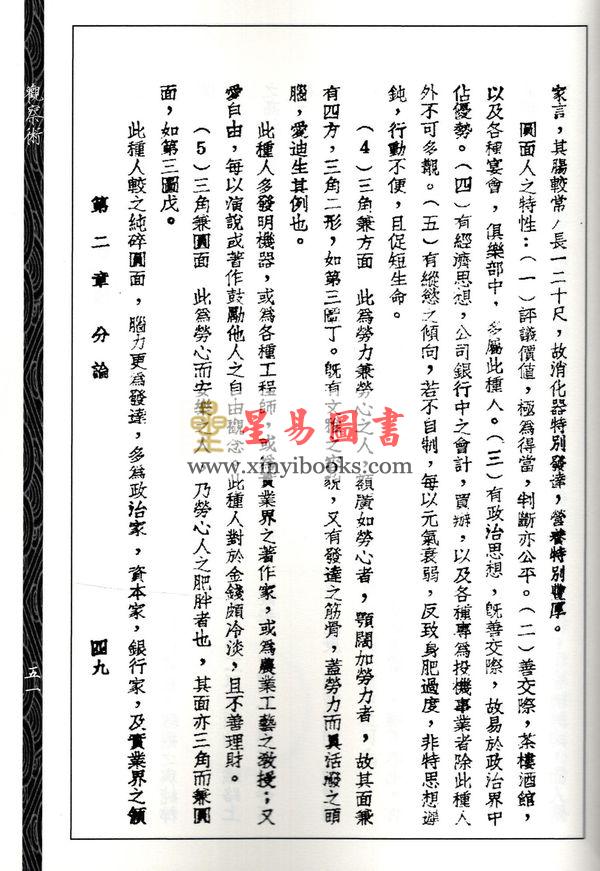 家言，其腸較常人長一二十尺，故消化器特別發達，營養特別豐厚。
圓面人之特性：（一）評議價值，極為得當，判斷亦公平。（二）善交際，茶樓酒館，
以及各種宴會，俱樂部中，多屬此種人。（三）有政治思想，旣善交際，故易於政治界中
佔優勢。（四）有經濟思想，公司銀行中之會計，買辦，以及各種專為投機事業者除此種人
外不可多覯。（五）有縱慾之傾向，若不自制，每以元氣衰弱，反致身肥過度，非特思想遲
鈍，行動不便，且促短生命。
（4）三角兼方面　此為勞力兼勞心之人　額廣如勞心者，顎闊如勞力者，故其面兼
有四方，三角二形，如第三圖丁。旣有文雅之容貌，又有發達之筋骨，蓋勞力而具活潑之頭
腦，愛迪生其例也。
此種人多發明機器，或為各種工程師，或為實業界之著作家，或為農業工藝之教授；又
愛自由，每以演說或著作鼓勵他人之自由觀念　此種人對於金錢頗冷淡，且不善理財。
（5）三角兼圓面　此為勞心而安樂之人　乃勞心人之肥胖者也，其面亦三角而兼圓
面，如第三圖戊。
此種人較之純碎圓面，腦力更為發達，多為政治家，資本家，銀行家，及實業界之領
第二章　分論
四九
觀察術
五一
星易圖書
www.xinyibooks.com